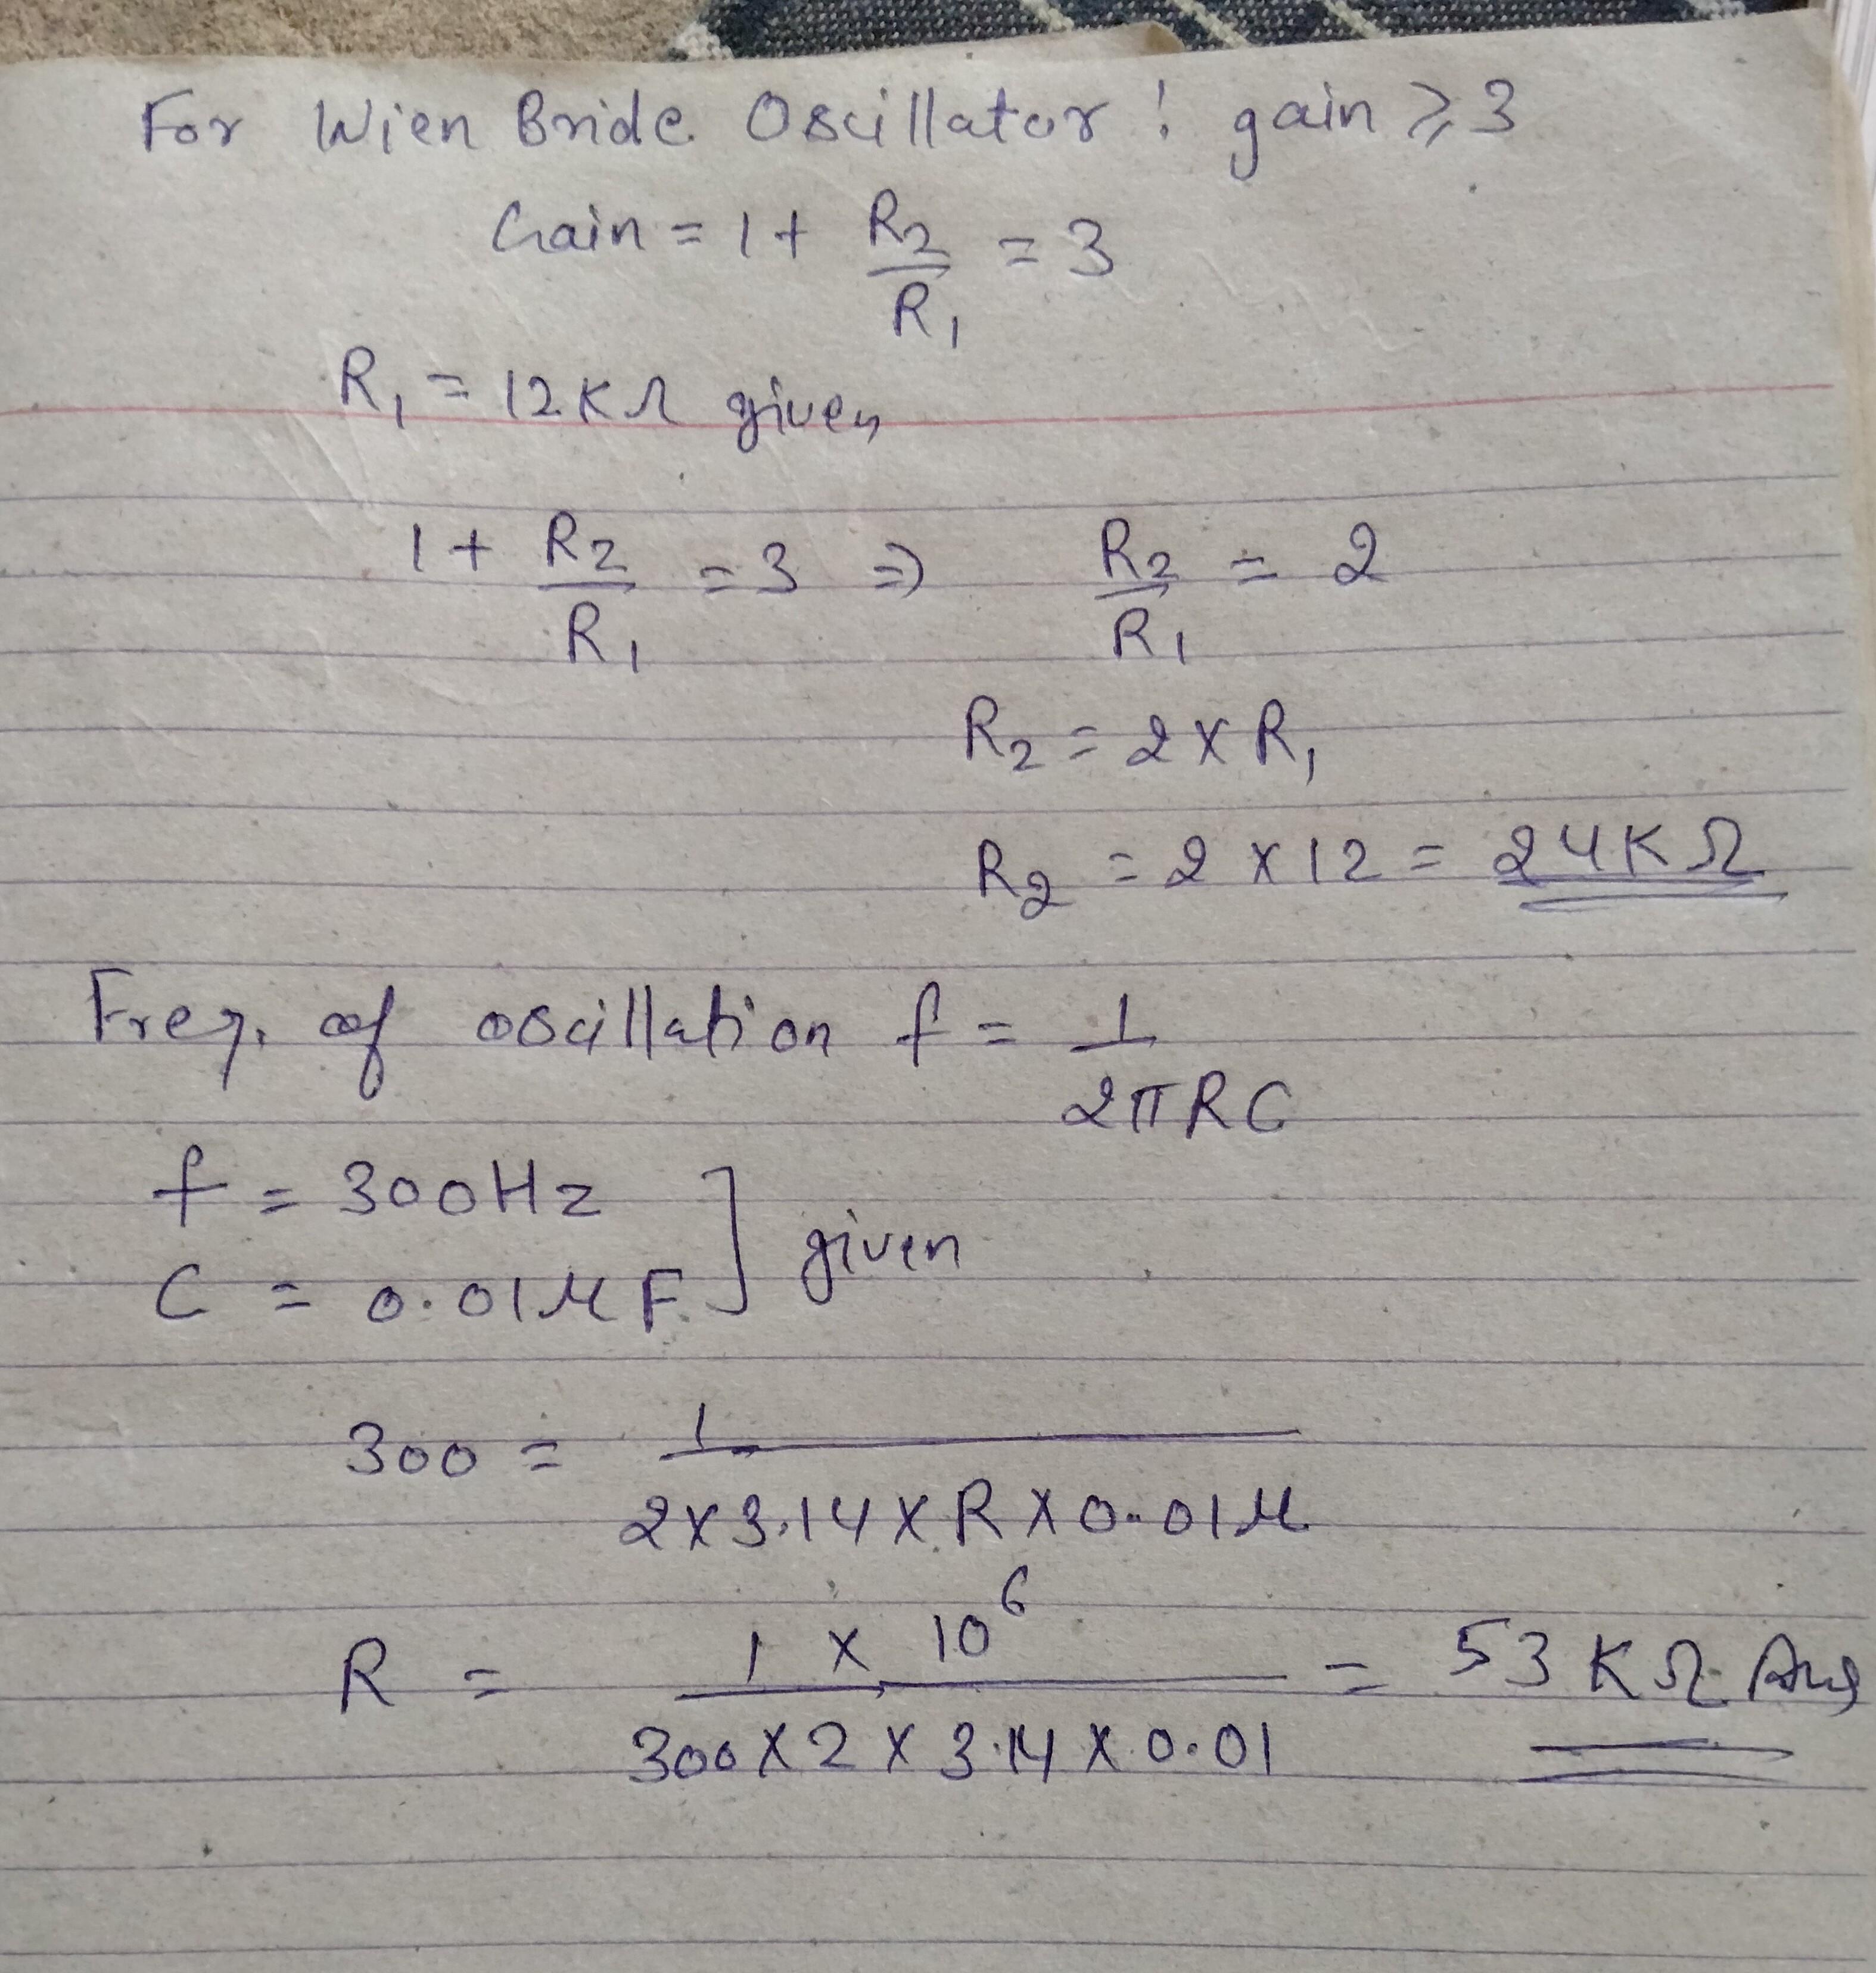 For Wien Bride Oscillator : gain ≥ 3
Gain = 1 + R2/R1 = 3
R1 = 12KΩ given
1 + R2/R1 = 3 ⇒ R2/R1 = 2
R2 = 2 × R1
R2 = 2 × 12 = 24KΩ
Freq. of oscillation f = 1/2πRC
f = 300Hz
C = 0.01μF ] given
300 = 1/2×3.14×R×0.01μ
R = 1 × 10^6/300×2×3.14×0.01 = 53KΩ Ans